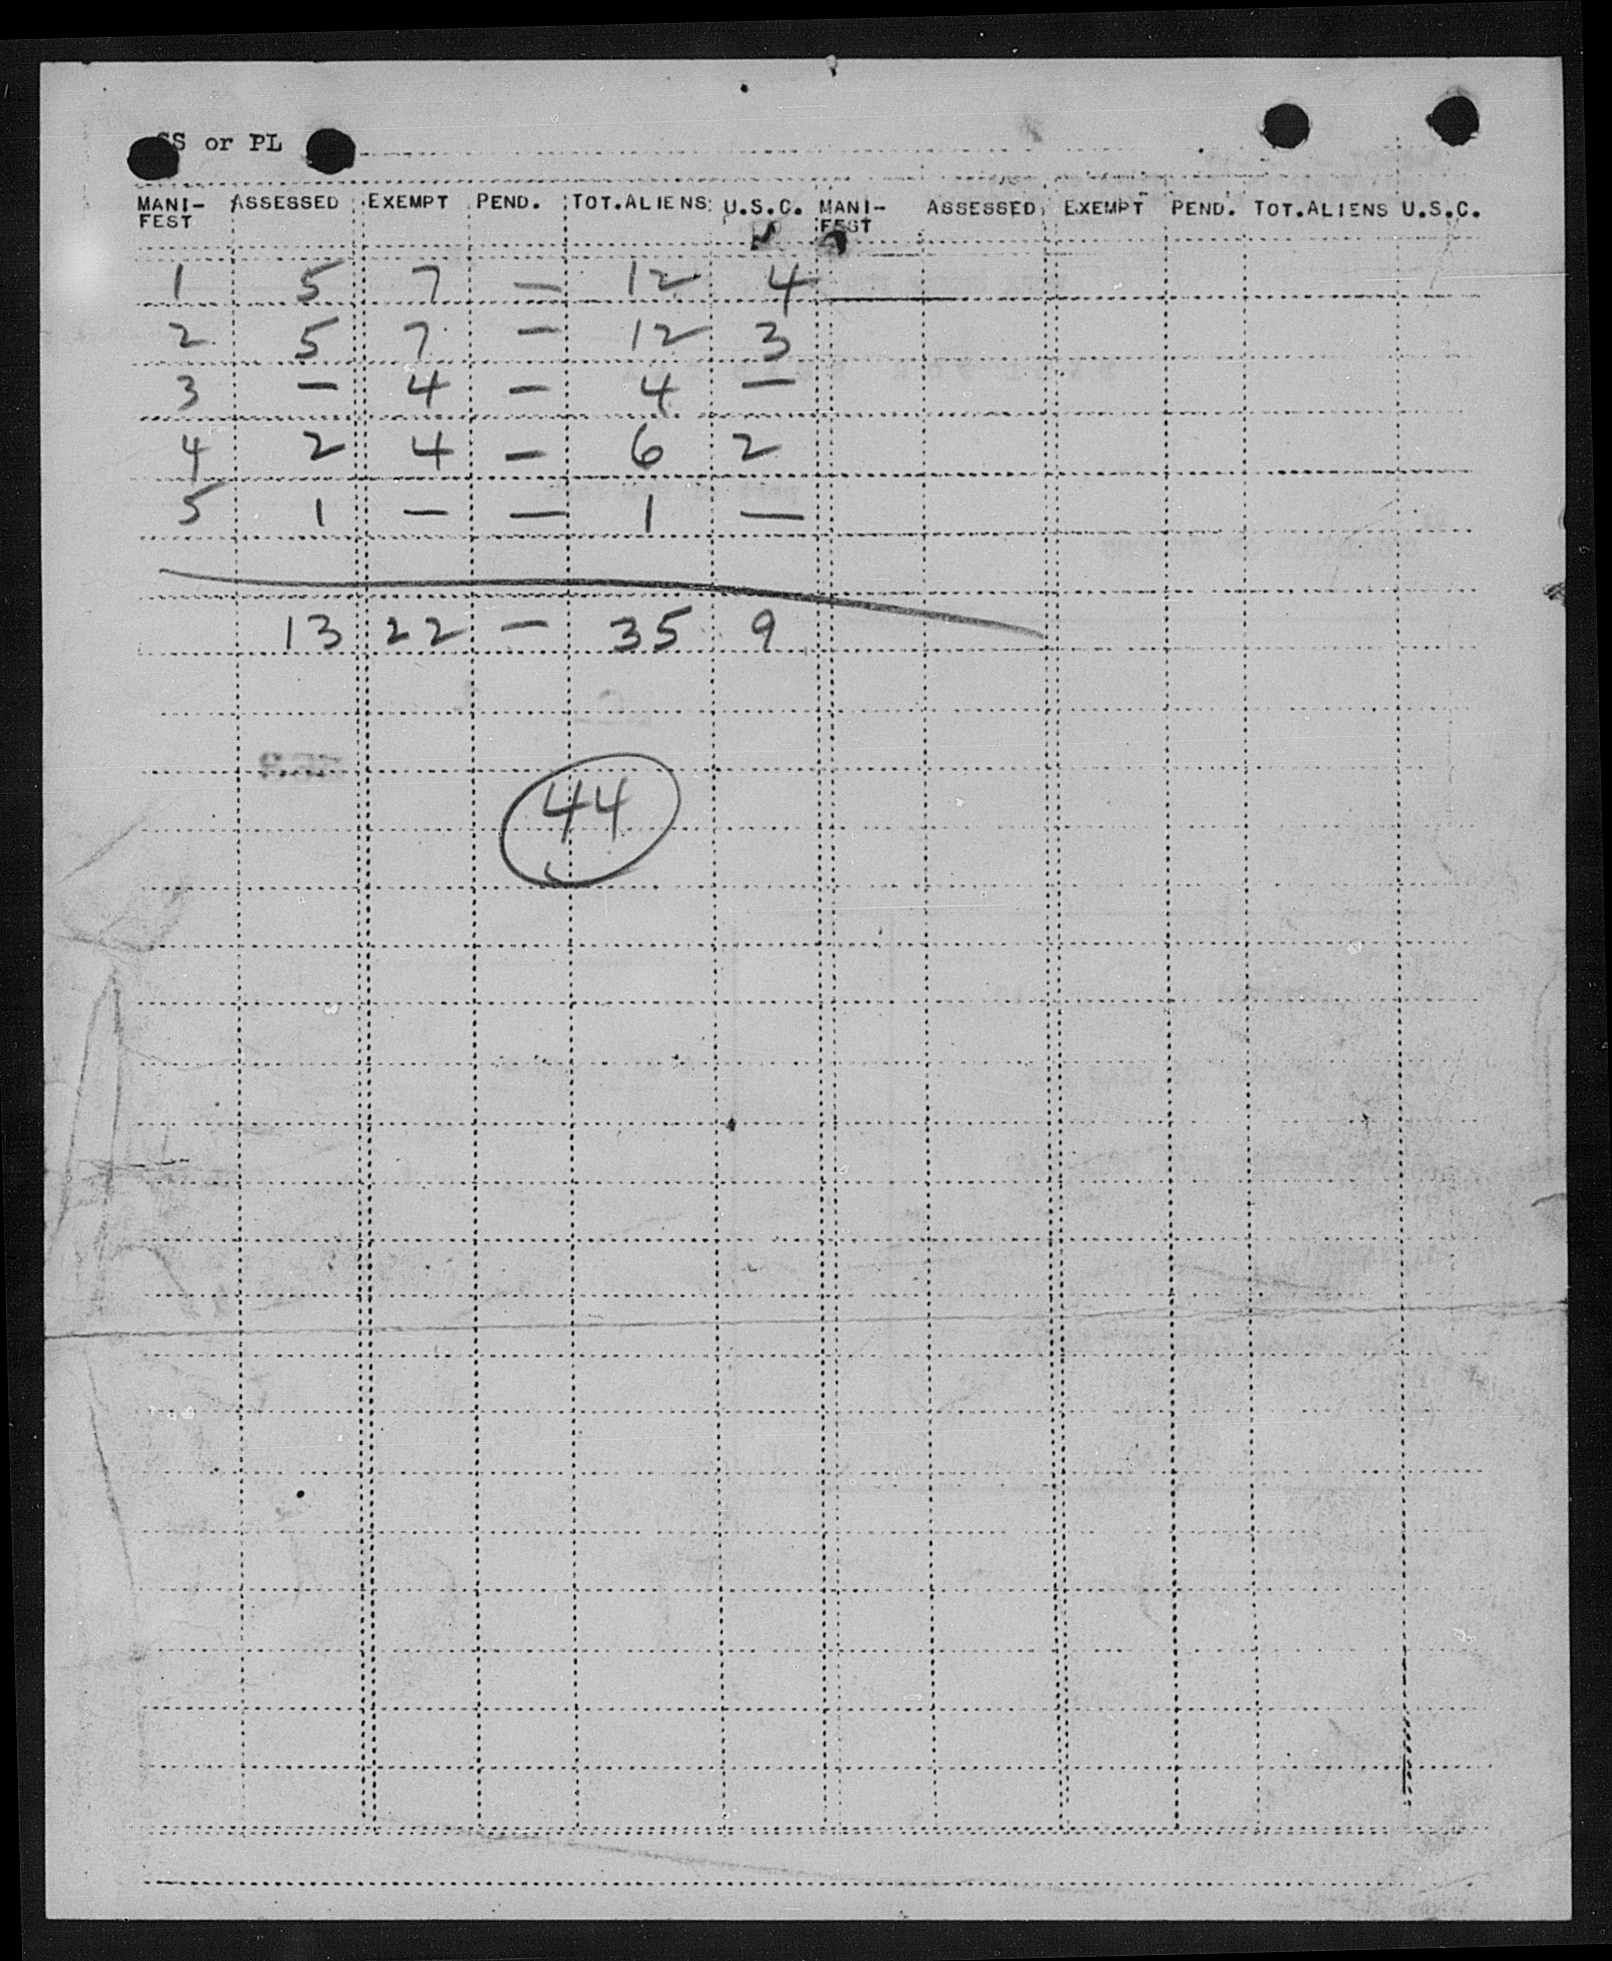 SS or PL
MANI-FEST ASSESSED EXEMPT PEND. TOT.ALIENS U.S.C. MANI-FEST ASSESSED EXEMPT PEND. TOT.ALIENS U.S.C.
1 5 7 — 12 4
2 5 7 — 12 3
3 — 4 — 4 —
4 2 4 — 6 2
5 1 — — 1 —
13 22 — 35 9
44